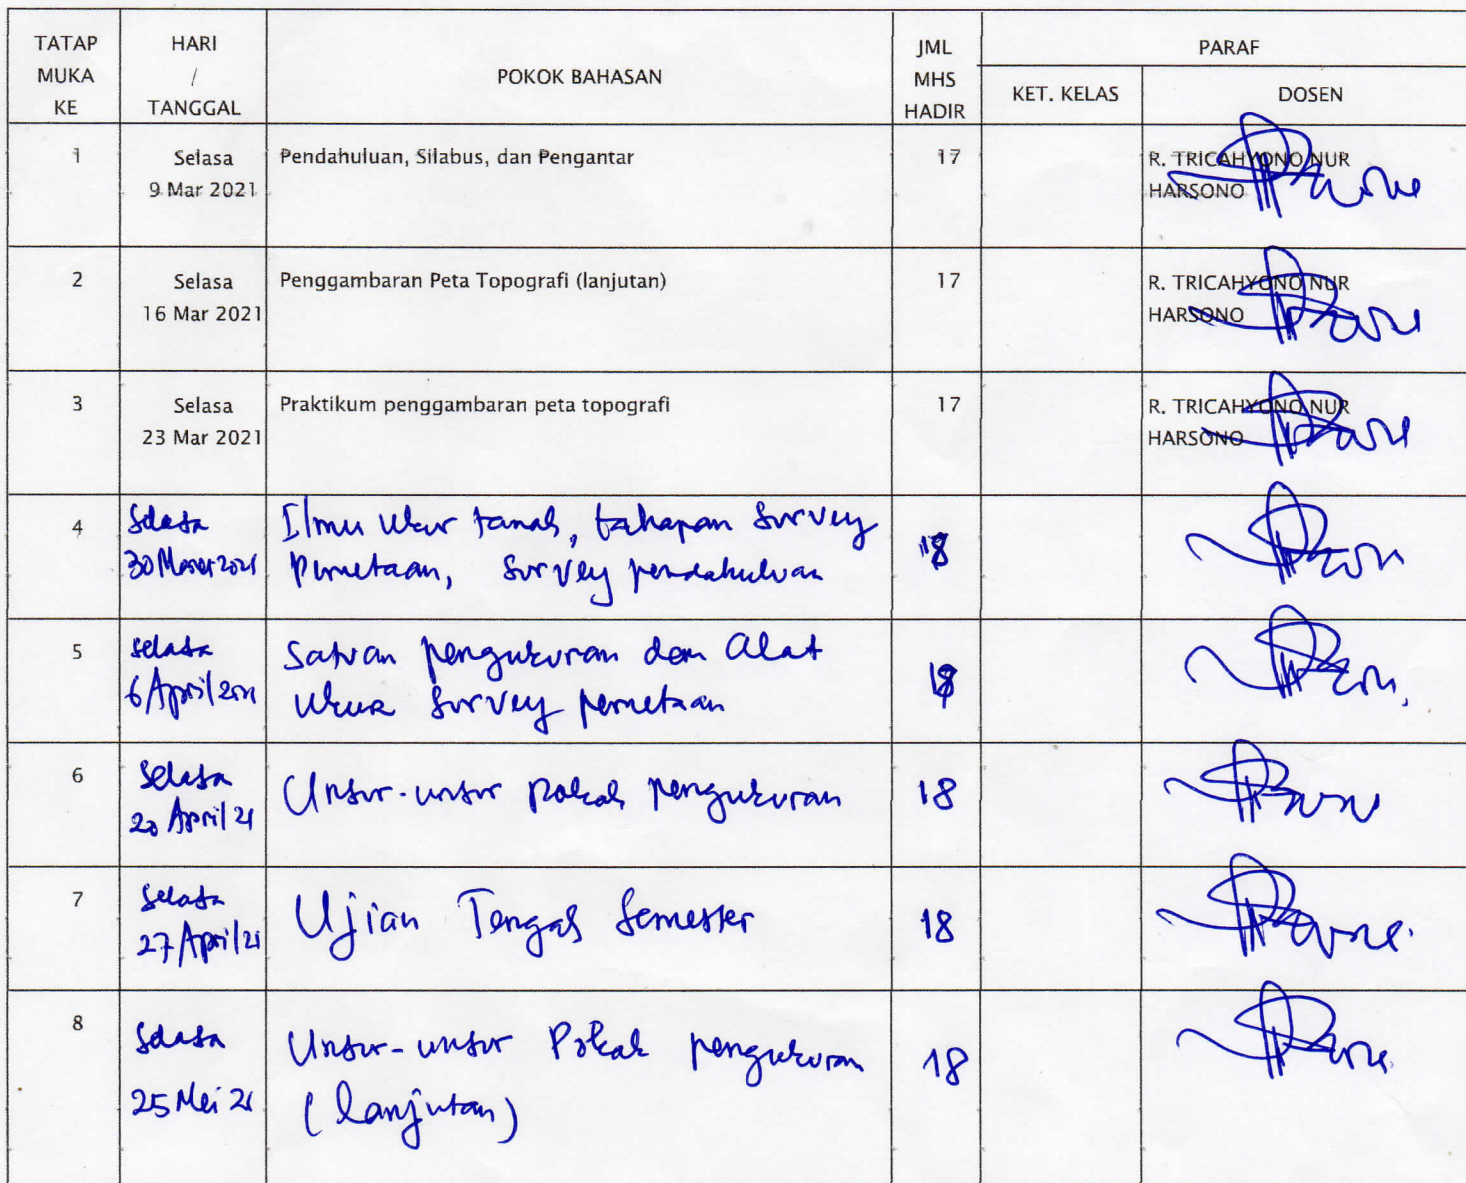 TATAP MUKA KE
HARI / TANGGAL
POKOK BAHASAN
JML MHS HADIR
PARAF
KET. KELAS
DOSEN
1
Selasa
9 Mar 2021
Pendahuluan, Silabus, dan Pengantar
17
R. TRICAHYONO NUR
HARSONO
2
Selasa
16 Mar 2021
Penggambaran Peta Topografi (lanjutan)
17
R. TRICAHYONO NUR
HARSONO
3
Selasa
23 Mar 2021
Praktikum penggambaran peta topografi
17
R. TRICAHYONO NUR
HARSONO
4
Selasa
30 Maret 2021
Ilmu Ukur tanah, tahapan Survey
Pemetaan, Survey pendahuluan
18
5
Selasa
6 April 2021
Satuan pengukuran dan Alat
Ukur Survey pemetaan
18
6
Selasa
20 April 21
Unsur-unsur Pokok pengukuran
18
7
Selasa
27 April 21
Ujian Tengah Semester
18
8
Selasa
25 Mei 21
Unsur-unsur Pokok pengukuran
(lanjutan)
18